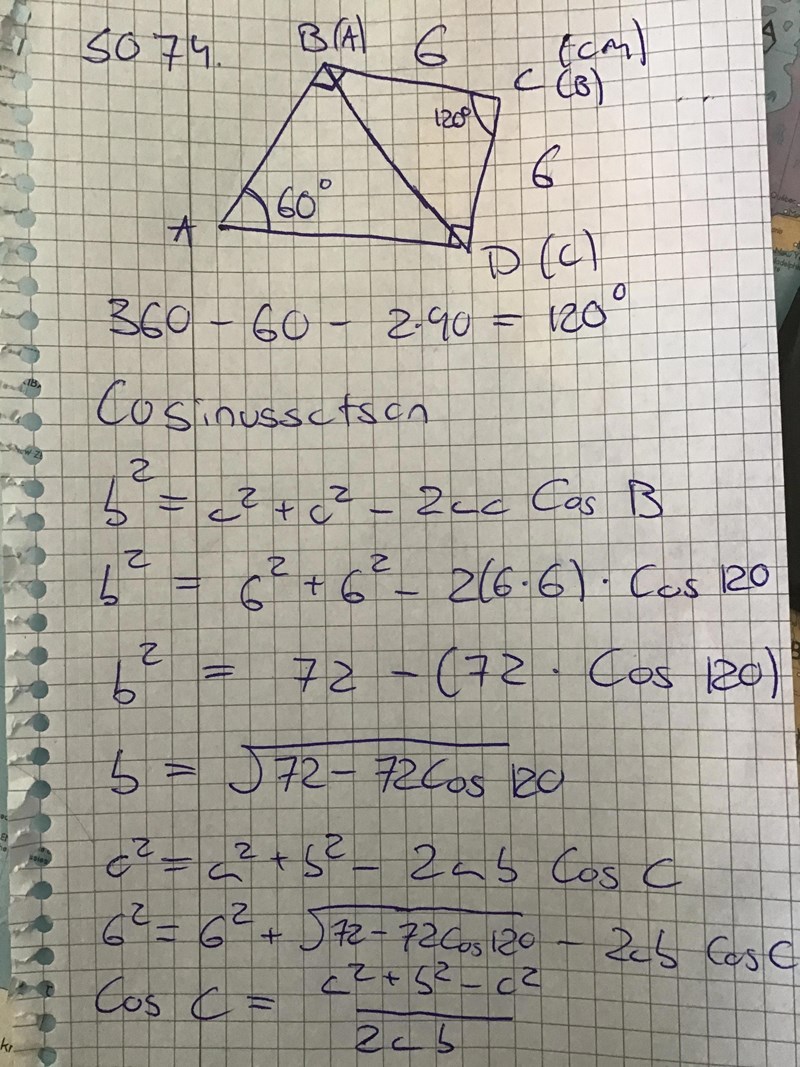 5074.
B(A) 6 (cm)
C (B)
120°
6
60°
A
D (C)
360 - 60 - 2·90 = 120°
Cosinussetsen
b² = a² + c² - 2ac Cos B
b² = 6² + 6² - 2(6·6) · Cos 120
b² = 72 - (72 · Cos 120)
b = √72 - 72Cos 120
c² = a² + b² - 2ab Cos C
6² = 6² + √72 - 72Cos 120 - 2ab Cos C
Cos C = a² + b² - c²
2ab